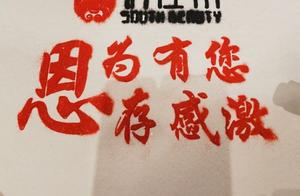 SOUTH BEAUTY
恩为有您
存感激